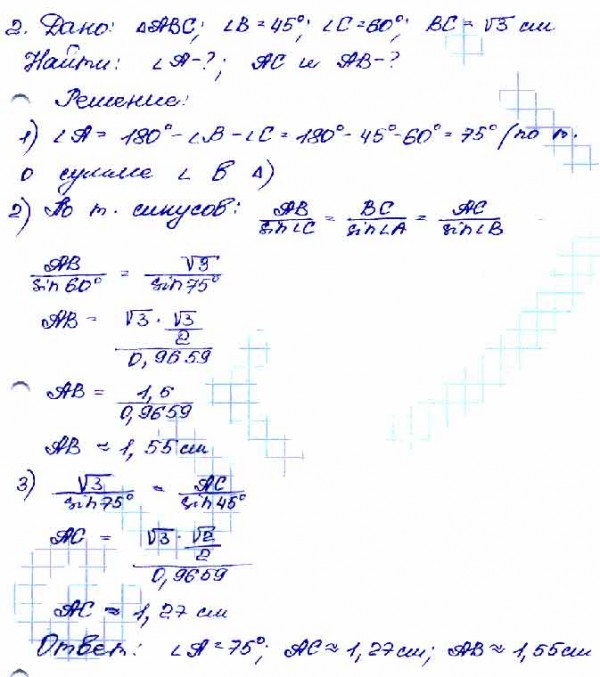 2. Дано: △ABC; ∠B = 45°; ∠C = 60°; BC = √3 см
Найти: ∠A-?; AC и AB-?
Решение:
1) ∠A = 180° - ∠B - ∠C = 180° - 45° - 60° = 75° (по т.
о сумме ∠ в △)
2) По т. синусов: AB/sin∠C = BC/sin∠A = AC/sin∠B
AB/sin60° = √3/sin75°
AB = (√3 · √3/2)/0,9659
AB = 1,5/0,9659
AB ≈ 1,55 см
3) √3/sin75° = AC/sin45°
AC = (√3 · √2/2)/0,9659
AC ≈ 1,27 см
Ответ: ∠A = 75°; AC ≈ 1,27 см; AB ≈ 1,55 см